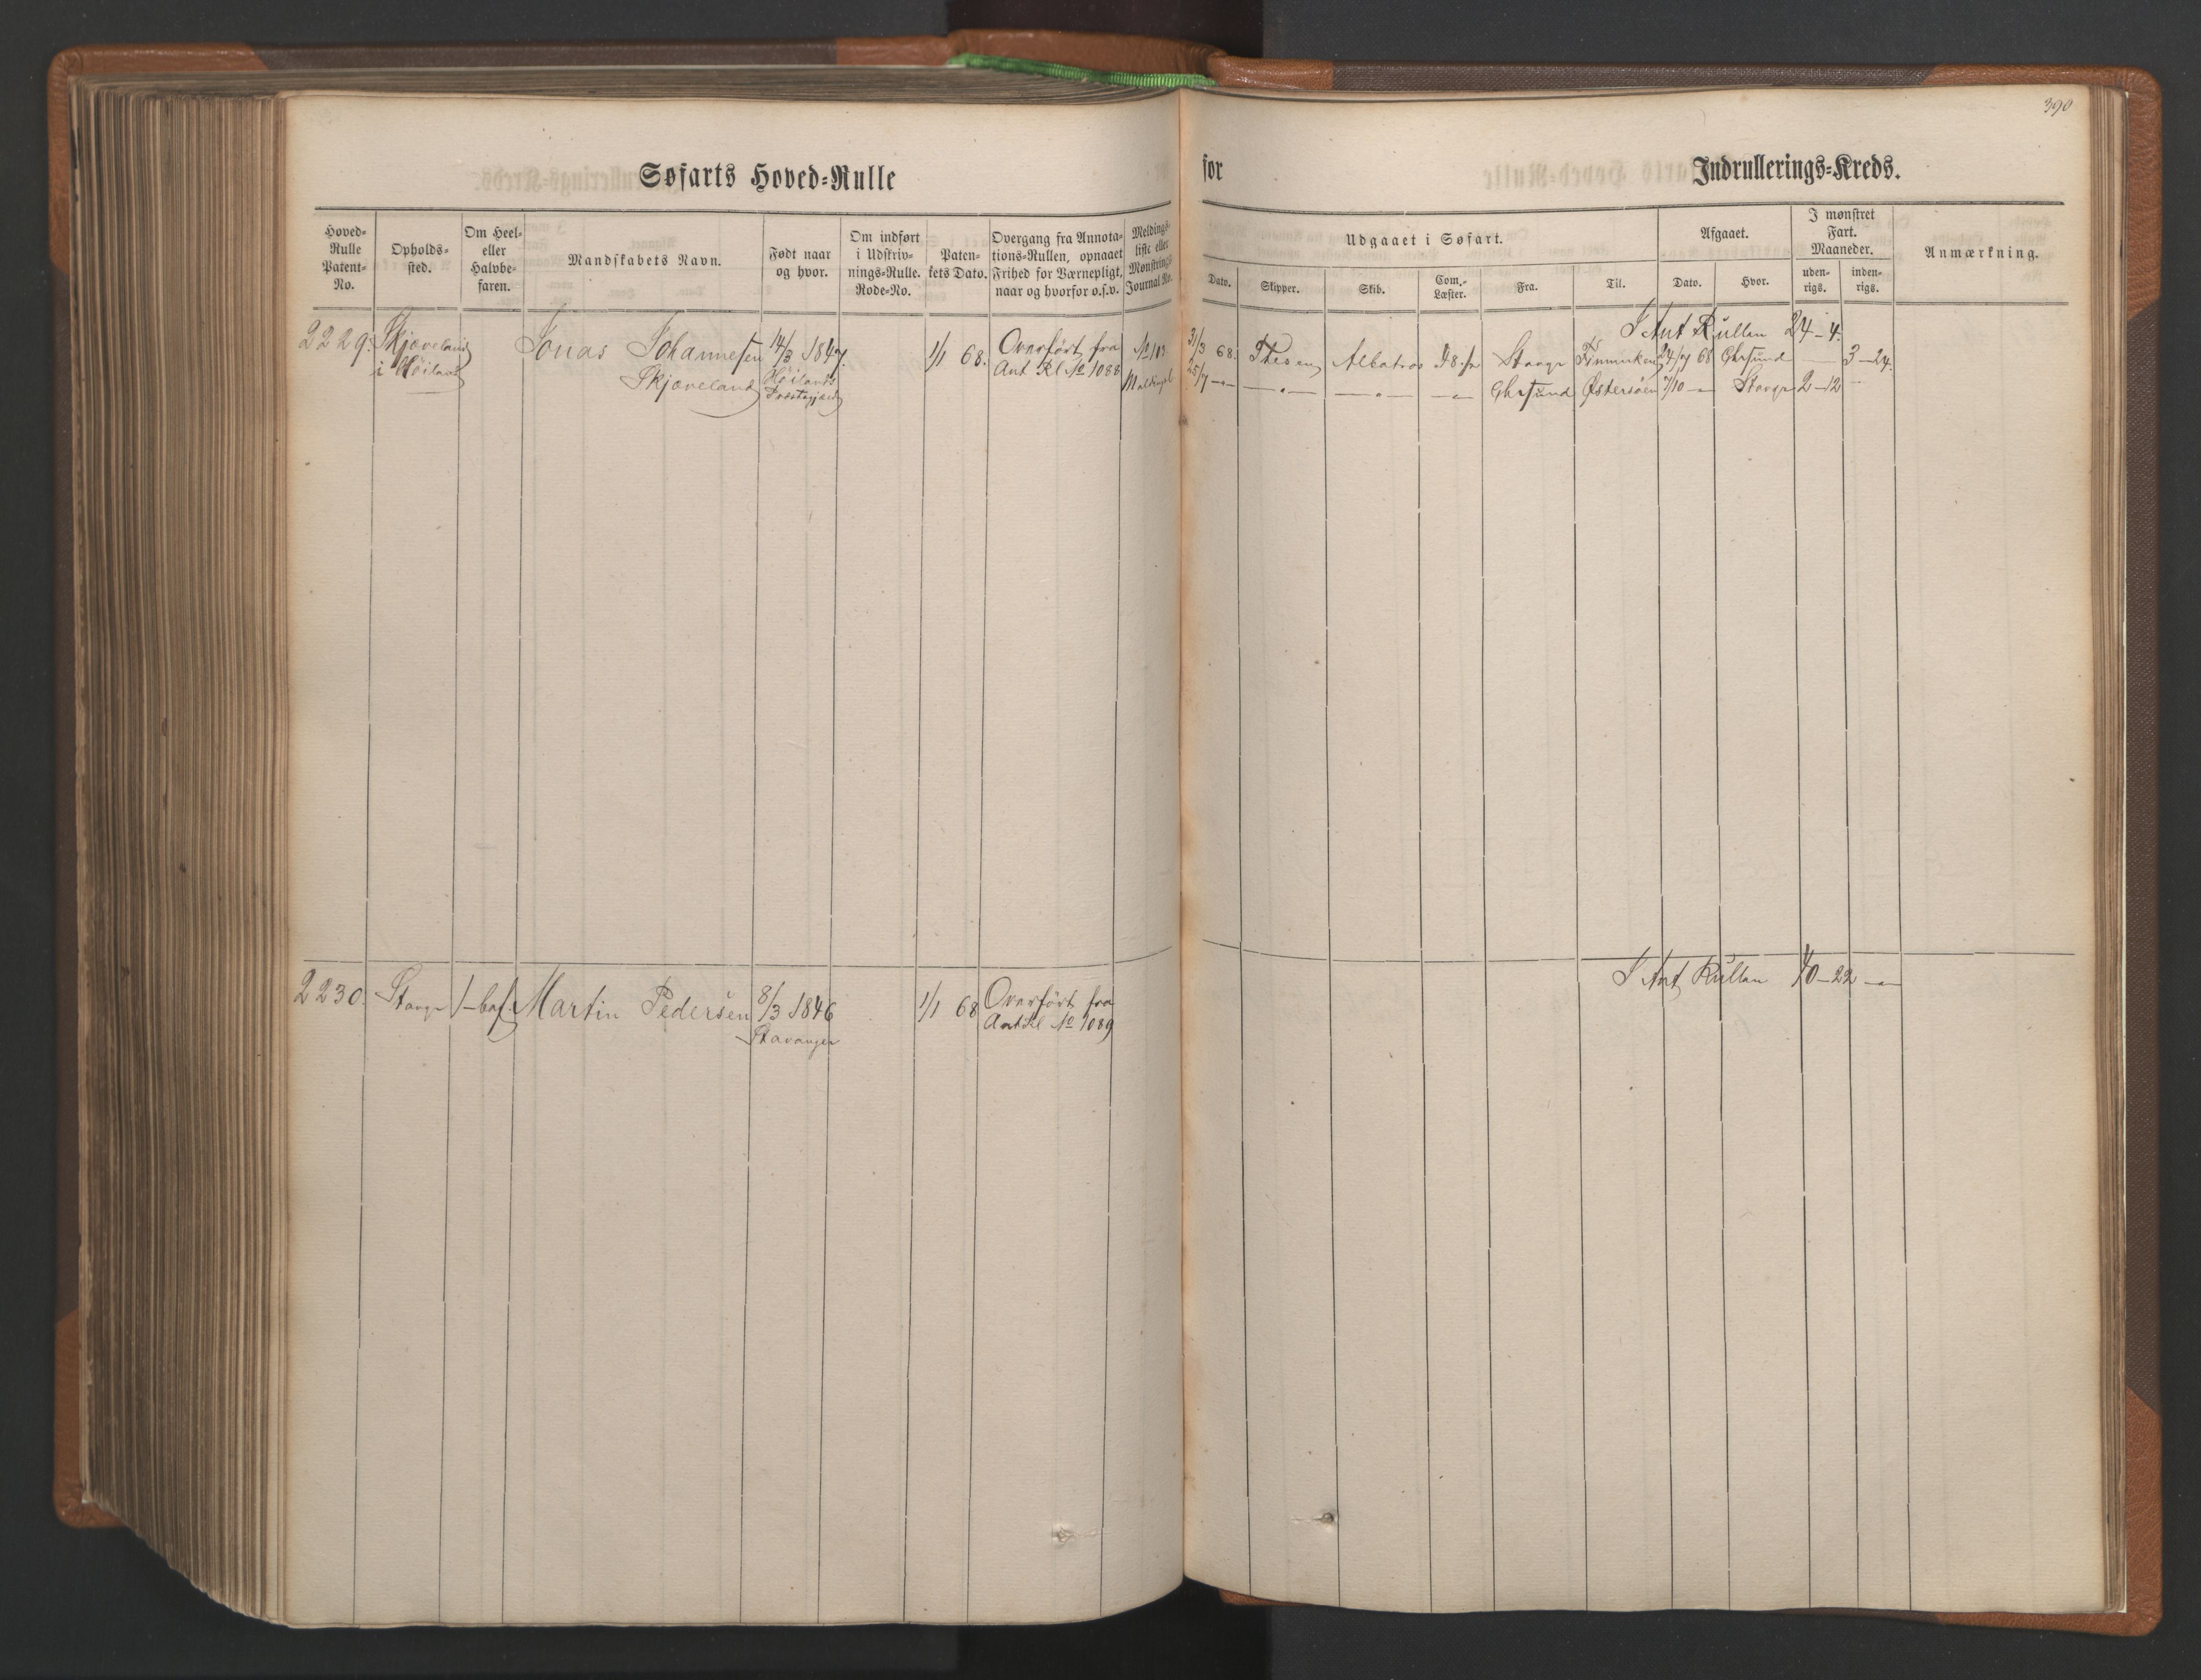 390
Søfarts Hoved=Rulle
for
Indrullerings=Kreds.
Hoved=
Rulle
Patent=
No.
Opholds=
sted.
Om Heel=
eller
Halvbe=
faren.
Mandskabets Navn.
Født naar
og hvor.
Om indført
i Udskriv=
nings=Rulle.
Rode=No.
Paten=
tets Dato.
Overgang fra Annota=
tions=Rullen, opnaaet
Frihed for Værnepligt,
naar og hvorfor o.s.v.
Meldings=
liste eller
Mønstrings
Journal No.
Udgaaet i Søfart.
Dato.
Skipper.
Skib.
Com.=
Læster.
Fra.
Til.
Afgaaet.
Dato.
Hvor.
I mønstret
Fart.
Maaneder.
uden=
rigs.
inden=
rigs.
Anmærkning.
2229. Skjæveland Jonas Johannesen 14/3 1847. 1/1 68. Overført fra
i Høiland Skjæveland Høilands Ant Rl No 1088
Præstegjæld
I Ant Rullen 24-4.
31/3 68. Thesen Albatros Stavgr Finmarken 24/7 68 Chrsund — 3-24.
25/7 —"— —"— —"— —"— Chrsund Østersøen 7/10 — Stavgr 2-12 —
2230. Stavgr 1-bef. Martin Pedersen 8/3 1846 1/1 68 Overført fra
Stavanger Ant Rl No 1089
I Ant Rullen 40-22 —"—